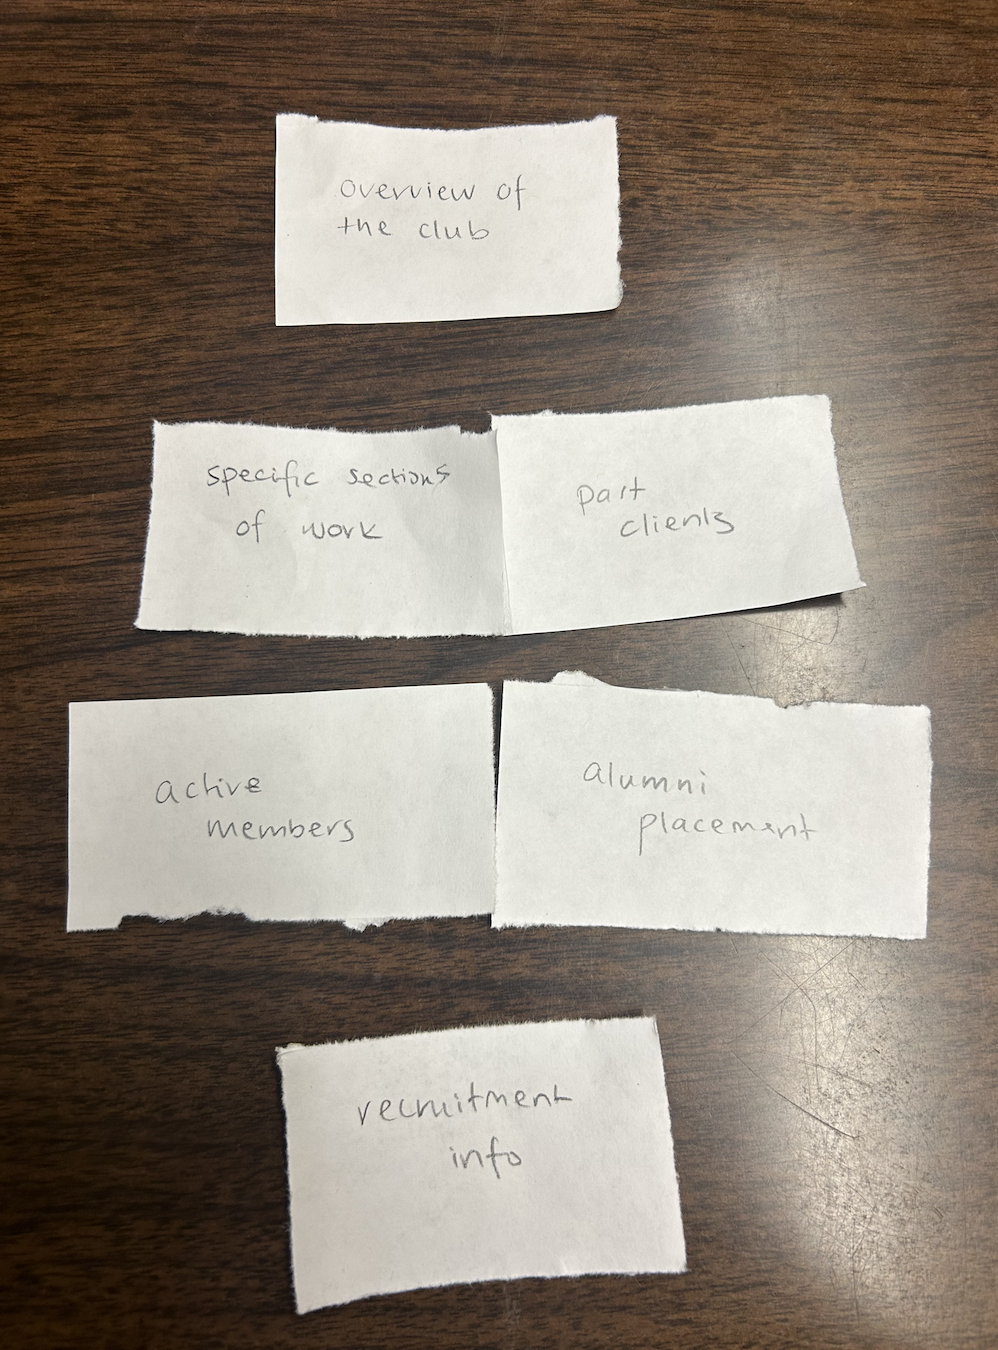 overview of
the club
specific sections
of work
part
clients
active
members
alumni
placement
recruitment
info